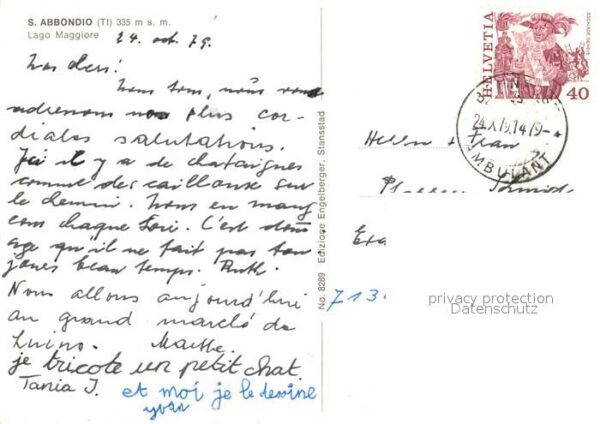 S. ABBONDIO (TI) 335 m s. m.
Lago Maggiore
24. oct. 79.
Nous tous, nous vous
adressons nos plus cor-
diales salutations.
Ici il y a de chataignes
comme des cailloux sur
le chemin. Nous en mang
eons chaque soir. C'est dom
age qu'il ne fait pas tou
jours beau temps. Ruth.
Nous allons aujourd'hui
au grand marché de
Luino.
je tricote un petit chat.
Tania J.
et moi je le dessine
yvan
No. 8269 Edizione Engelberger, Stansstad
HELVETIA
40
24.X.79.14
AMBULANT
Herrn + Frau
713.
privacy protection
Datenschutz